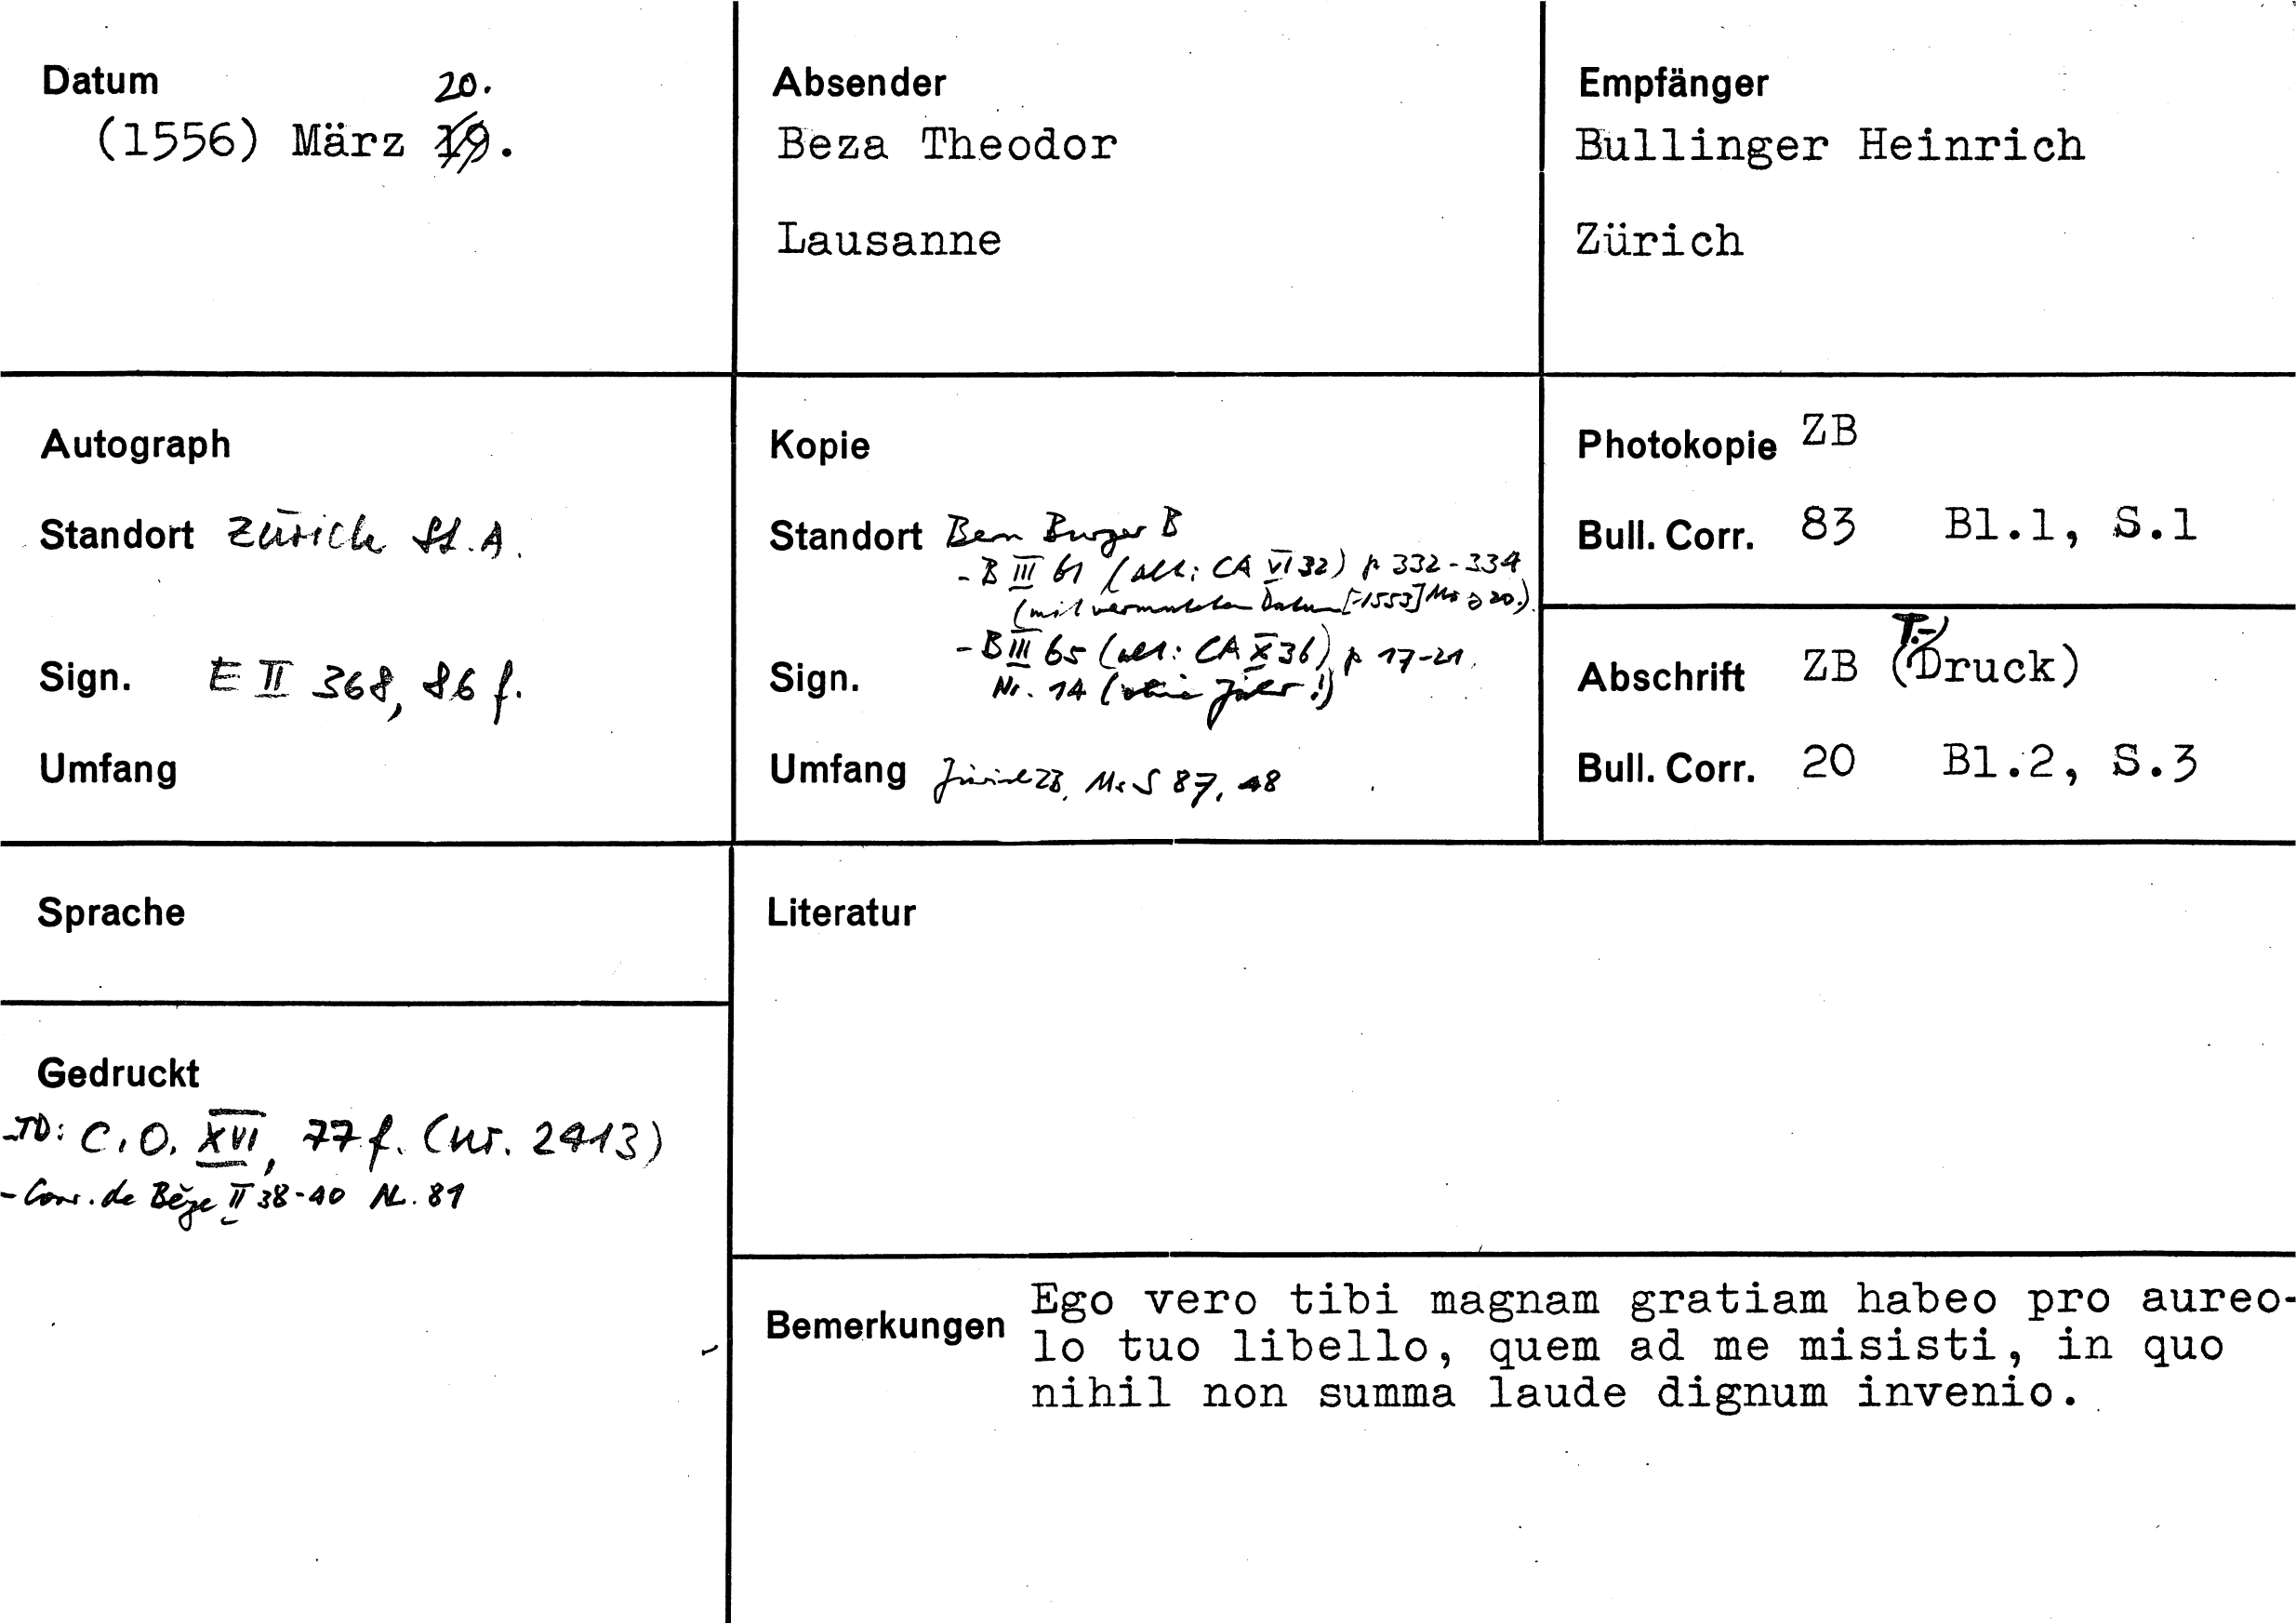 Datum
20.
(1556) März 19.
Absender
Beza Theodor
Lausanne
Empfänger
Bullinger Heinrich
Zürich
Autograph
Standort Zürich St.A.
Sign. E II 368, 86 f.
Umfang
Kopie
Standort Bern Burger B
- B III 61 (alt: CA VI 32) p 332-334
(mit vermutetem Datum [-1553] 20.)
- B III 65 (alt: CA X 36) p 17-21.
Sign. Nr. 14 (ohne Jahr!)
Umfang Zürich ZB, Ms S 87, 48
Photokopie ZB
Bull. Corr. 83 Bl.1, S.1
Abschrift ZB (T.-Druck)
Bull. Corr. 20 Bl.2, S.3
Sprache
Gedruckt
-TD: C.O. XVI, 77 f. (Nr. 2413)
- Corr. de Bèze II 38-40 Nr. 81
Literatur
Bemerkungen Ego vero tibi magnam gratiam habeo pro aureo-
lo tuo libello, quem ad me misisti, in quo
nihil non summa laude dignum invenio.